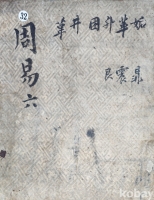 姤萃升困井革
鼎震艮
周易六
32
kobay